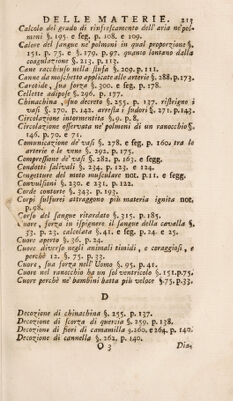 DELLE MATERIE. 213
Calcolo del grado di rinfrescamento dell' aria ne' pol-
moni §. 195. e seg. p. 108. e 109.
Calore del sangue ne' polmoni in qual proporzione §.
151. p. 75. e §. 179. p. 97. quanto lontano dalla
coagulazione §. 213. p. 113.
Cane racchiuso nella stufa §. 209. p. 111.
Canne da moschetto applicate alle arterie §. 288. p. 173.
Carotide, sua forza §. 300. e seg. p. 178.
Cellette adipose §. 296. p. 177.
Chinachina, suo decotto §. 255. p. 137. ristrigne i
vasi §. 270. p. 142. arresta i sudori §. 271. p. 143.
Circolazione intormentita §. 9. p. 8.
Circolazione osservata ne' polmoni di un ranocchio §.
146. p. 70. e 71.
Comunicazione de' vasi §. 278. e seg. p. 160. tra lo
arterie e le vene §. 292. p. 175.
Compressione de' vasi §. 282. p. 163. e segg.
Condotti salivali §. 234. p. 123. e 124.
Congetture del moto muscolare not. p. 11. e segg.
Convulsioni §. 230. e 231. p. 122.
Corde contorte §. 343. p. 193.
Corpi sulfurei attraggono più materia ignita not.
p. 98.
Corso del sangue ritardato §. 315. p. 185.
Cuore, forza in ispignere il sangue della cavalla §.
53. p. 23. calcolata §. 41. e seg. p. 24. e 25.
Cuore aperto §. 36. p. 24.
Cuore diverso negli animali timidi, e coraggiosi, e
perchè 12. §. 75. p. 33.
Cuore, sua forza nell' Uomo §. 95. p. 41.
Cuore nel ranocchio ha un sol ventricolo §. 151. p. 75.
Cuore perchè ne' bambini batta più veloce §. 75. p. 33.
D
Decozione di chinachina §. 255. p. 137.
Decozione di scorza di quercia §. 259. p. 138.
Decozione di fiori di camamilla §. 260. e 264. p. 140.
Decozione di cannella §. 262. p. 140.
O 3 Dia-